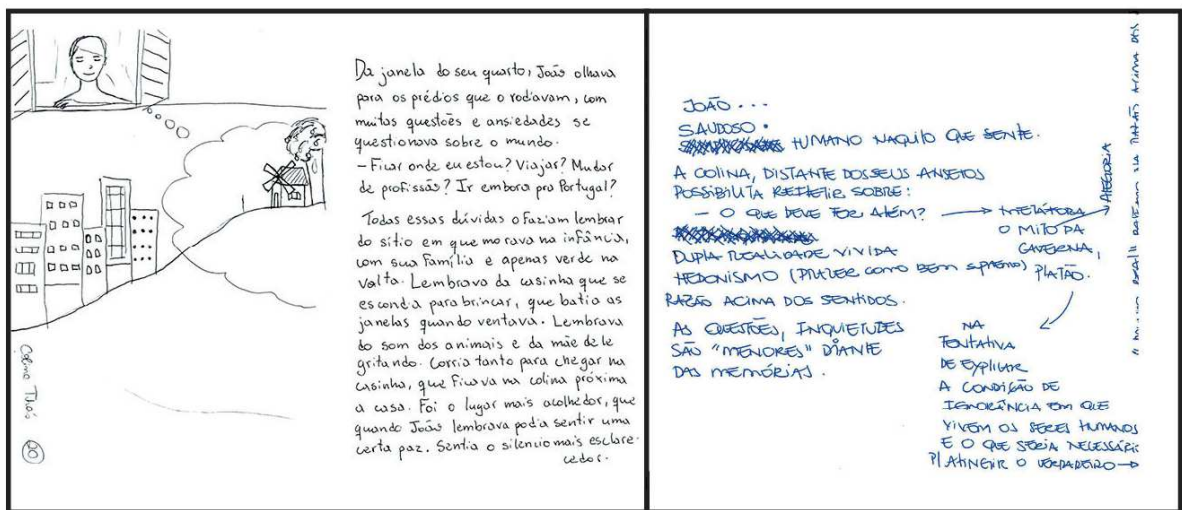 Da janela do seu quarto, João olhava
para os prédios que o rodiavam, com
muitas questões e ansiedades se
questionava sobre o mundo.
- Ficar onde eu estou? Viajar? Mudar
de profissão? Ir embora pra Portugal?
Todas essas dúvidas o faziam lembrar
do sítio em que morava na infância,
com sua família e apenas verde na
volta. Lembrava da casinha que se
escondia para brincar, que batia as
janelas quando ventava. Lembrava
do som dos animais e da mãe dele
gritando. Corria tanto para chegar na
casinha, que ficava na colina próxima
a casa. Foi o lugar mais acolhedor, que
quando João lembrava podia sentir uma
certa paz. Sentia o silencio mais esclare-
cedor.
20
JOÃO...
SAUDOSO.
HUMANO NAQUILO QUE SENTE.
A COLINA, DISTANTE DOS SEUS ANSEIOS
POSSIBILITA REFLETIR SOBRE:
- O QUE DEVE TER ALÉM? → METÁFORA → ALEGORIA
O MITO DA
CAVERNA,
PLATÃO.
DUPLA REALIDADE VIVIDA
HEDONISMO (PRAZER COMO BEM SUPREMO)
RAZÃO ACIMA DOS SENTIDOS.
AS QUESTÕES, INQUIETUDES
SÃO "MENORES" DIANTE
DAS MEMÓRIAS.
NA
TENTATIVA
DE EXPLICAR
A CONDIÇÃO DE
IGNORÂNCIA EM QUE
VIVEM OS SERES HUMANOS
E O QUE SERIA NECESSÁRIO
P/ ATINGIR O VERDADEIRO →
"MUNDO RAZÃO ACIMA DOS